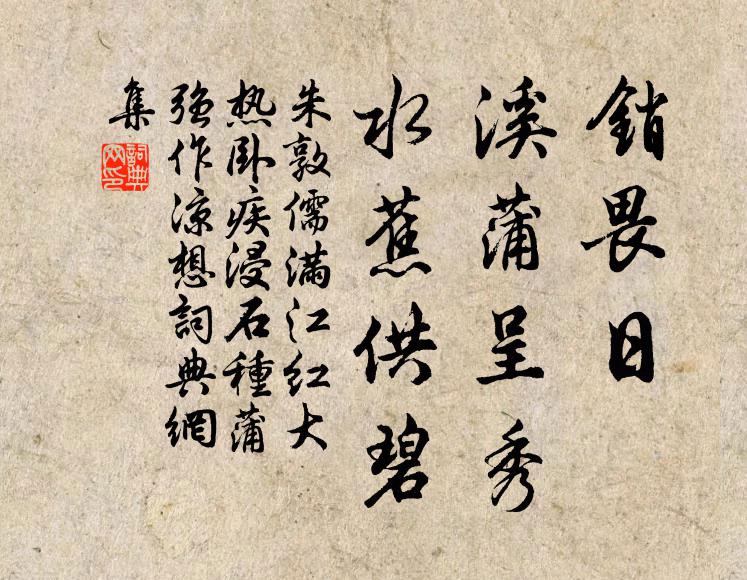 銷畏日
溪蒲呈秀
水蕉供碧
朱敦儒滿江红大
热卧疾浸石種蒲
强作凉想詞典網
集
詞典網印